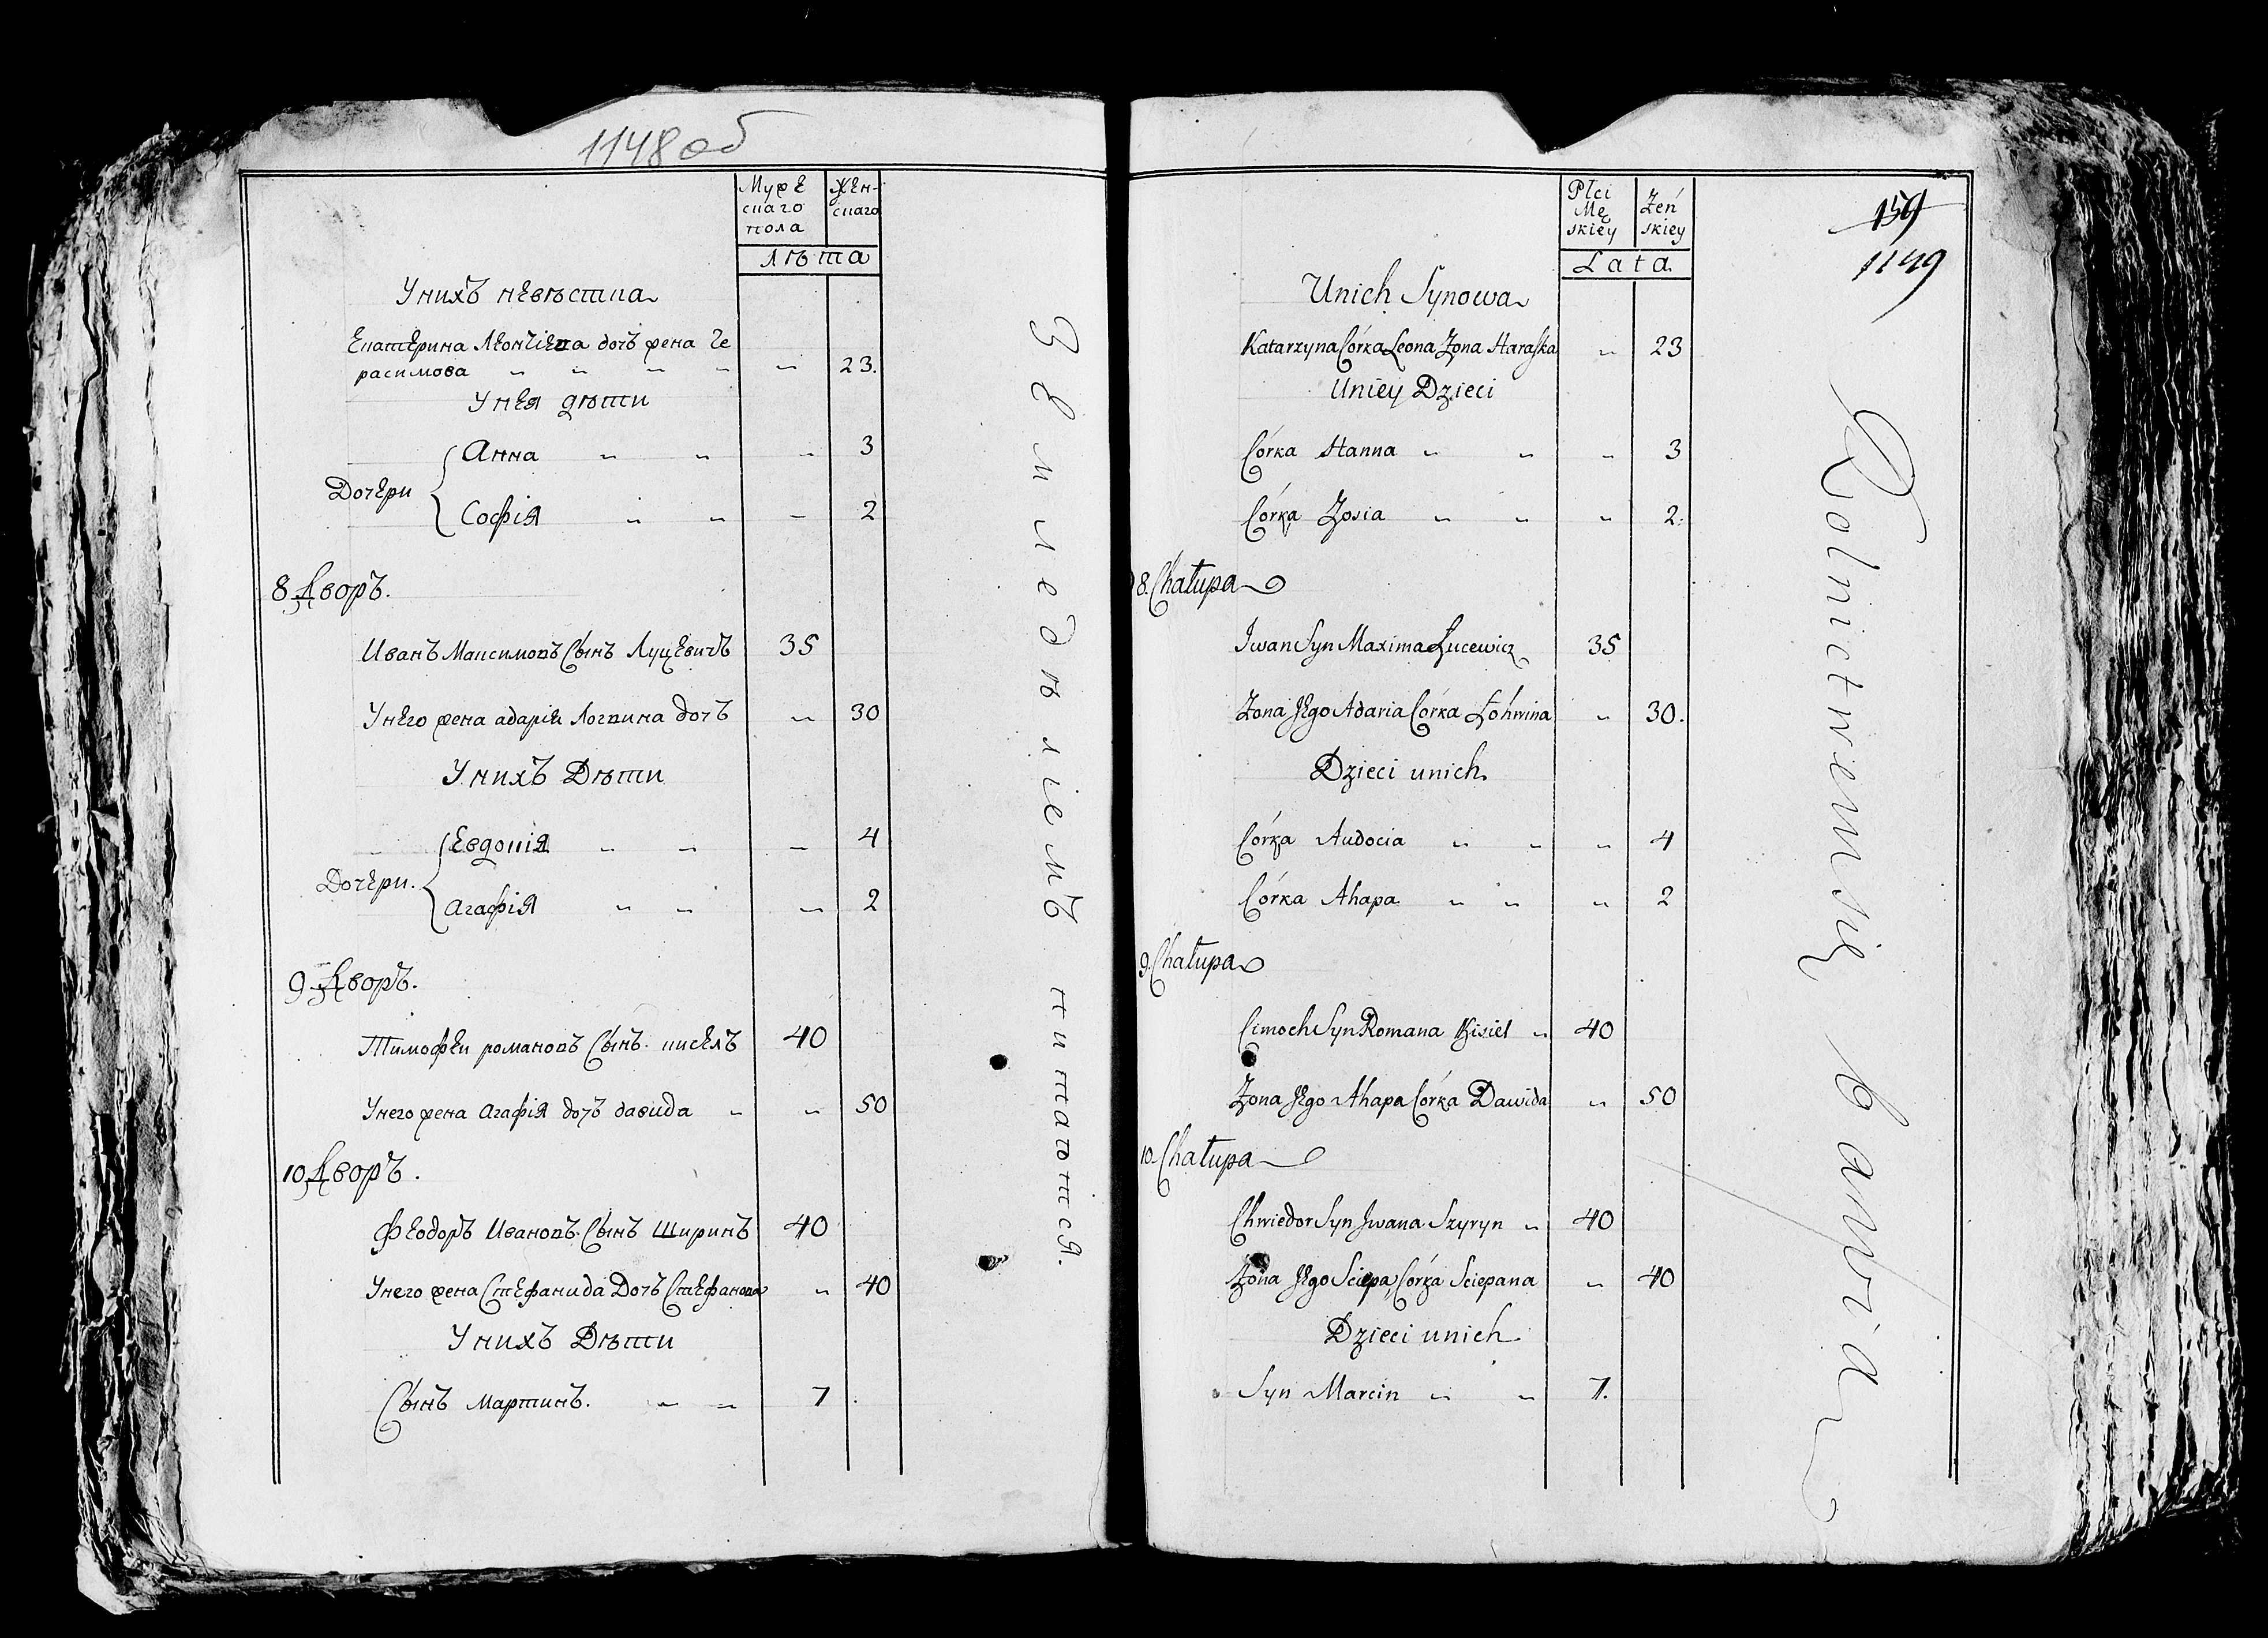 1148 об
Мужескаго пола
Женскаго
лѣта
У нихъ невѣстка
Екатерина Леонтіева дочь жена Ге
расимова " " " " " 23.
У нея дѣти
Дочери
Анна " " " 3
Софія " " " 2
8 Дворъ.
Иванъ Максимовъ Сынъ Луцевичъ 35
У него жена адарія Логвина дочь " 30
У нихъ Дѣти
Дочери.
Евдокія " " " 4
агафія " " " 2
9 Дворъ.
Тимофеи романовъ Сынъ. кисель 40
У него жена агафія дочь давида " " 50
10 Дворъ.
Феодоръ Ивановъ Сынъ Ширинъ 40
У него жена Стефанида Дочь Стефанова " 40
У нихъ Дѣти
Сынъ Мартинъ. " " 7
Земледѣліемъ питаются.
159
1149
Płci Męskiey
Żeńskiey
Lata.
Unich Synowa
Katarzyna Córka Leona Żona Haraśka " 23
Uniey Dzieci
Córka Hanna " " " 3
Córka Zosia " " " 2.
8. Chałupa
Jwan Syn Maxima Łucewicz 35
Żona Jego Adaria Córka Łohwina " 30.
Dzieci unich
Córka Audocia " " " 4
Córka Ahapa " " " 2
9. Chałupa
Cimoch Syn Romana Kisiel " 40
Żona Jego Ahapa Córka Dawida " 50
10. Chałupa
Chwiedor Syn Jwana Szyryn " 40
Żona Jego Sciepa, Córka Sciepana " 40
Dzieci unich.
Syn Marcin " " 7.
Rolnictwem się bawia